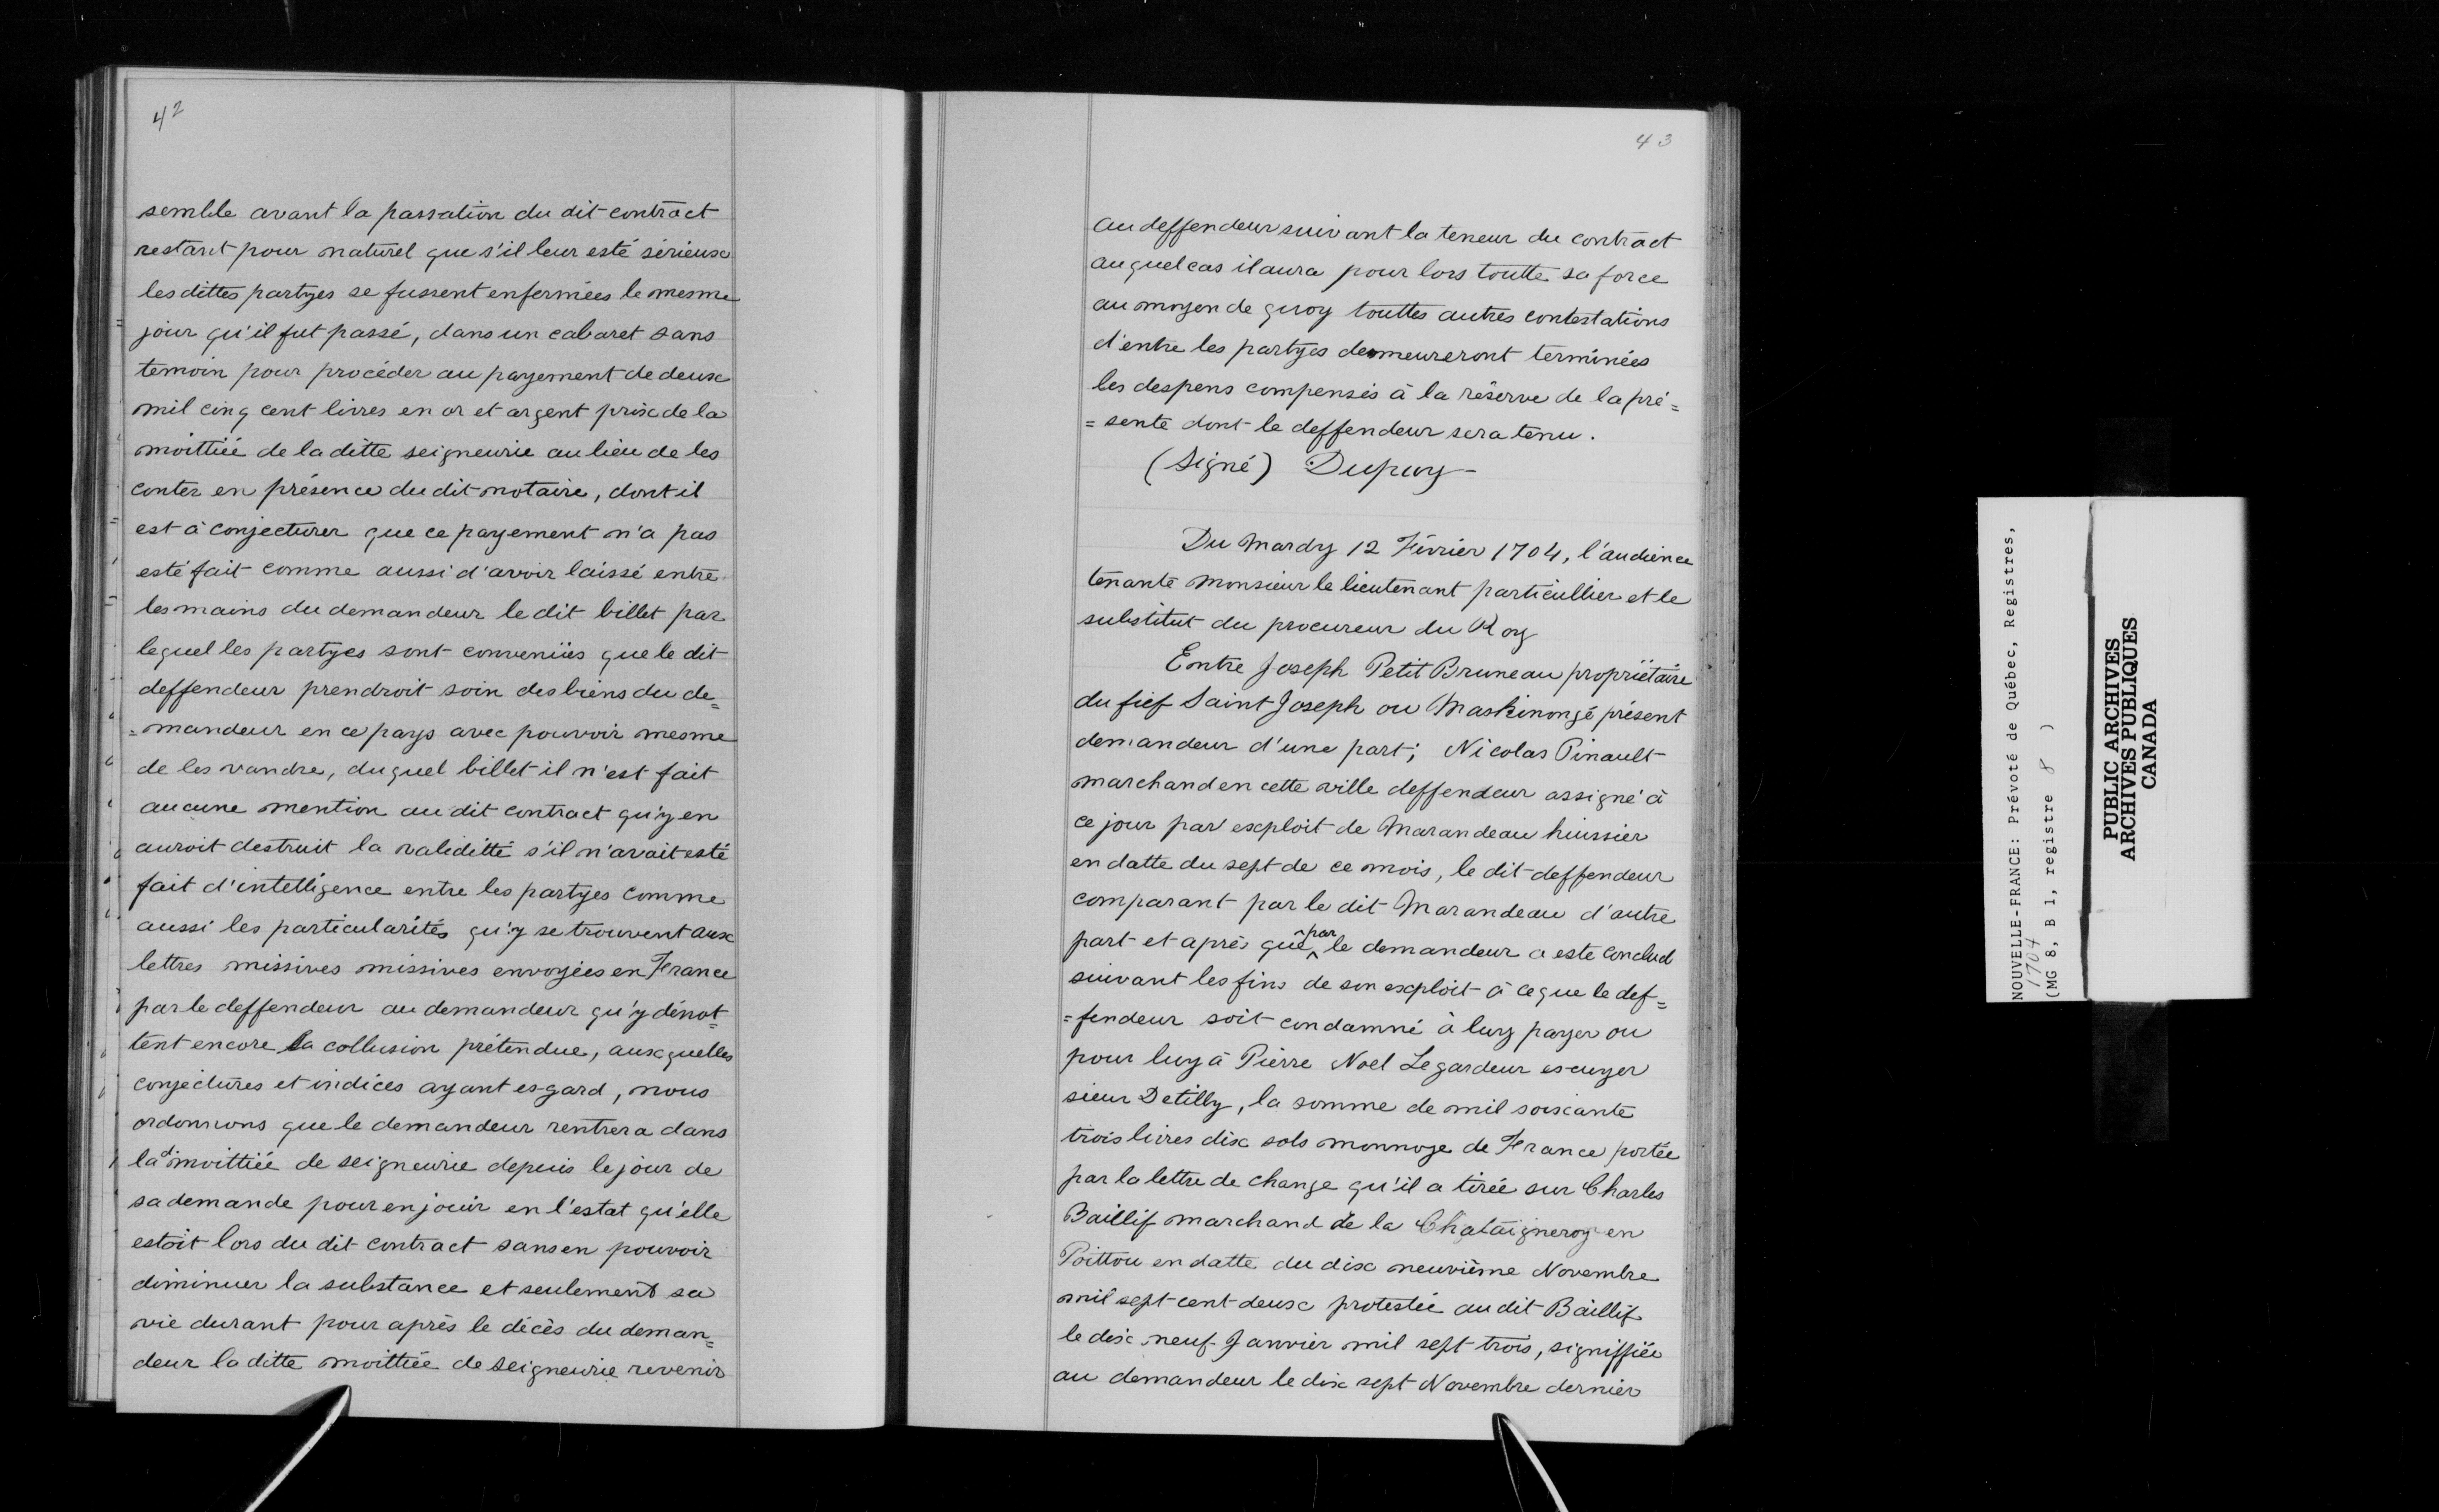 42
semble avant la passation du dit contract
restant pour naturel que s'il leur esté sérieux
les dittes partyes se fussent enfermées le mesme
jour qu'il fut passé, dans un cabaret sans
temoin pour procéder au payement de deux
mil cinq cent livres en or et argent prix de la
moittiée de la ditte seigneurie au lieu de les
conter en présence du dit notaire, dont il
est à conjecturer que ce payement n'a pas
esté fait comme aussi d'avoir laissé entre
les mains du demandeur le dit billet par
lequel les partyes sont convenües que le dit
deffendeur prendroit soin des biens du de=
=mandeur en ce pays avec pouvoir mesme
de les vandre, duquel billet il n'est fait
aucune mention au dit contract qu'y en
auroit destruit la validitté s'il n'avait esté
fait d'intelligence entre les partyes comme
aussi les particularités qu'y se trouvent aux
lettres missives missives envoyées en France
par le deffendeur au demandeur qu'y dénot=
tent encore la collusion prétendue, auxquelles
conjectures et indices ayant esgard, nous
ordonnons que le demandeur rentrera dans
la d. moittiée de seigneurie depuis le jour de
sa demande pour en jouir en l'estat qu'elle
estoit lors du dit contract sans en pouvoir
diminuer la substance et seulement sa
vie durant pour après le décès du deman=
deur la ditte moittiée de seigneurie revenir
43
au deffendeur suivant la teneur du contract
auquel cas il aura pour lors toutte sa force
au moyen de quoy touttes autres contestations
d'entre les partyes demeureront terminées
les despens compensés à la réserve de la pré=
=sente dont le deffendeur sera tenu.
(Signé) Dupuy -
Du Mardy 12 Février 1704, l'audience
tenante monsieur le lieutenant particullier et le
substitut du procureur du Roy
Entre Joseph Petit Bruneau propriétaire
du fief Saint Joseph ou Maskinongé présent
demandeur d'une part; Nicolas Pinault
marchand en cette ville deffendeur assigné à
ce jour par exploit de Marandeau huissier
en datte du sept de ce mois, le dit deffendeur
comparant par le dit Marandeau d'autre
part et après que par le demandeur a este conclud
suivant les fins de son exploit à ce que le def=
=fendeur soit condamné à luy payer ou
pour luy à Pierre Noel Legardeur escuyer
sieur Detilly, la somme de mil soixante
trois livres dix sols monnoye de France portée
par la lettre de change qu'il a tirée sur Charles
Baillif marchand de la Chataigneroy en
Poittou en datte du dix neuvième Novembre
mil sept cent deux protestée au dit Baillif
le dix neuf Janvier mil sept trois, signiffiée
au demandeur le dix sept Novembre dernier
NOUVELLE-FRANCE: Prévoté de Québec, Registres,
1704
(MG 8, B 1, registre 8 )
PUBLIC ARCHIVES
ARCHIVES PUBLIQUES
CANADA